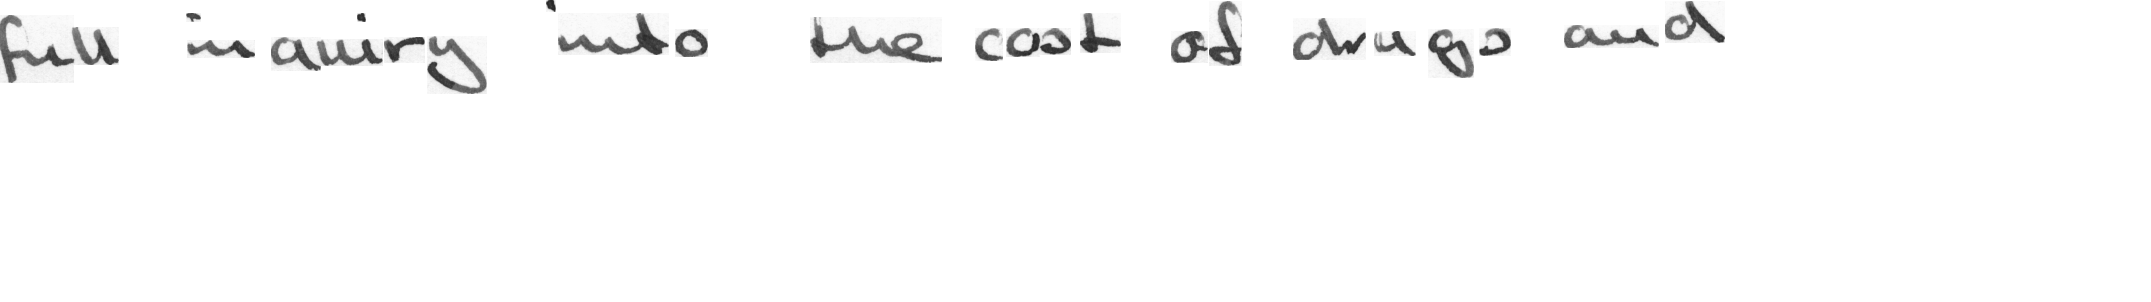 full inquiry into the cost of drugs and